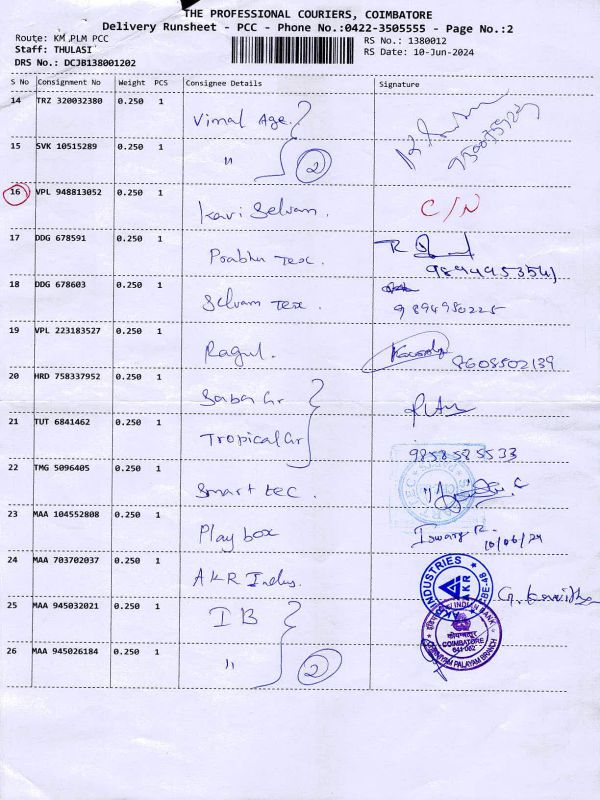 THE PROFESSIONAL COURIERS, COIMBATORE
Delivery Runsheet - PCC - Phone No.:0422-3505555 - Page No.:2
Route: KM PLM PCC
RS No.: 1380012
Staff: THULASI
RS Date: 10-Jun-2024
DRS No.: DCJB138001202
S No Consignment No Weight PCS Consignee Details Signature
14 TRZ 320032380 0.250 1 Vimal Age.
15 SVK 10515289 0.250 1 " 2
16 VPL 948813052 0.250 1 Kavi Selvam. C/N
17 DDG 678591 0.250 1 Prabhu Tex.
9894495354
18 DDG 678603 0.250 1 Selvam Tex. 9894950225
19 VPL 223183527 0.250 1 Ragul. 8608502139
20 HRD 758337952 0.250 1 Saba Gr
21 TUT 6841462 0.250 1 Tropical Gr 9858585533
22 TMG 5096405 0.250 1 Smart tec.
23 MAA 104552808 0.250 1 Play box Iswarya R.
10/06/24
24 MAA 703702037 0.250 1 AKR Indus.
AKR INDUSTRIES
AKR
25 MAA 945032021 0.250 1 IB
INDIAN BANK
COIMBATORE
641 062
PALAYAM BRANCH
26 MAA 945026184 0.250 1 " 2